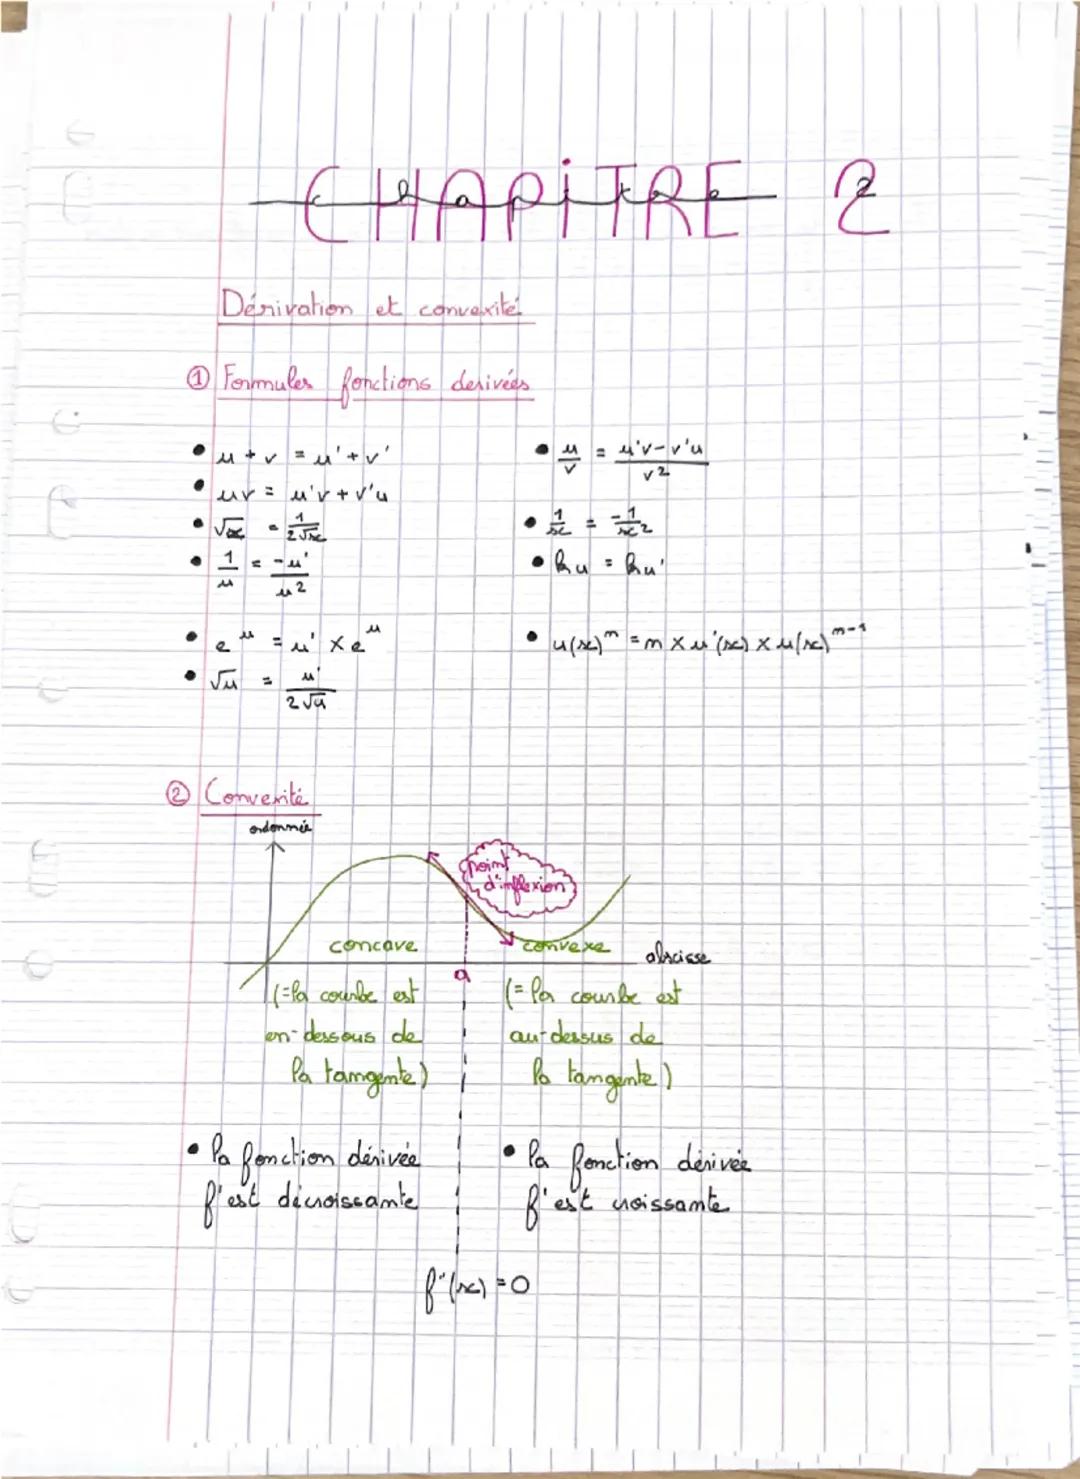 CHAPITRE 2
Chapitre 2
Dérivation et convexité
① Formules fonctions derivées
• u + v = u' + v'
• u/v = (u'v - v'u)/v²
• uv = u'v + v'u
• √x = 1/(2√x)
• 1/x = -1/x²
• 1/u = -u'/u²
• ku = ku'
• e^u = u' × e^u
• u(x)^n = n × u'(x) × u(x)^(n-1)
• √u = u'/(2√u)
② Convexité
ordonnée
point
d'inflexion
concave
convexe
abscisse
a
(= la courbe est
en-dessous de
la tangente)
(= la courbe est
au-dessus de
la tangente)
• la fonction dérivée
f' est décroissante
• la fonction dérivée
f' est croissante
f''(x) = 0